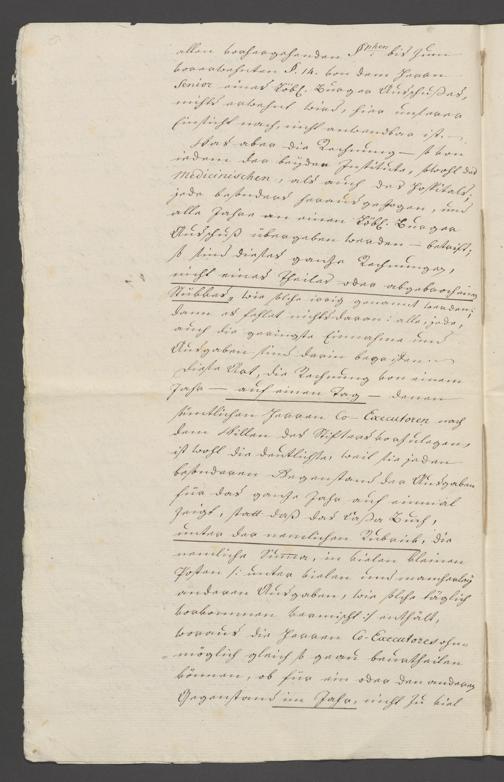 allen vorhergehenden §phen bis zum
vorerwehnten §. 14. von dem Herrn
Senior eines Löbl. Burger Ausschußes,
nichts erwehnt wird, hier unserer
Einsicht nach, nicht anwendbar ist. —
Was aber die Rechnung — so von
jedem der beyden Institute, sowohl des
Medicinischen, als auch des Hospitals;
jede besonders herausgezogen, und
alle Jahre an einen Löbl. Burger
Ausschuß übergeben werden — betrift;
so sind dieses ganze Rechnungen,
nicht eines Theiles oder abgebrochene
Stücke, wie solche irrig genannt werden;
denn es fehlet nichts daran: alle, jede,
auch die geringste Einnahme und
Ausgaben sind darin begriffen. —
Diese Art, die Rechnung von einem
Jahr — auf einen Tag — denen
sämtlichen Herren Co-Executoren nach
dem Willen des Stifters vorzulegen,
ist wohl die deutlichste, weil sie jeden
besonderen Gegenstand der Ausgaben
für das ganze Jahr auf einmal
zeigt, statt daß das Cassa Buch,
unter der nemlichen Rubrick, die
nemliche Summa, in vielen kleinen
Posten /: unter vielen und mancherley
anderen Ausgaben, wie solche täglich
vorkommen vermischt :/ enthält,
woraus die Herren Co-Executores ohn-
möglich gleich so genau beurtheilen
können, ob für ein oder den anderen
Gegenstand im Jahr, nicht zu viel